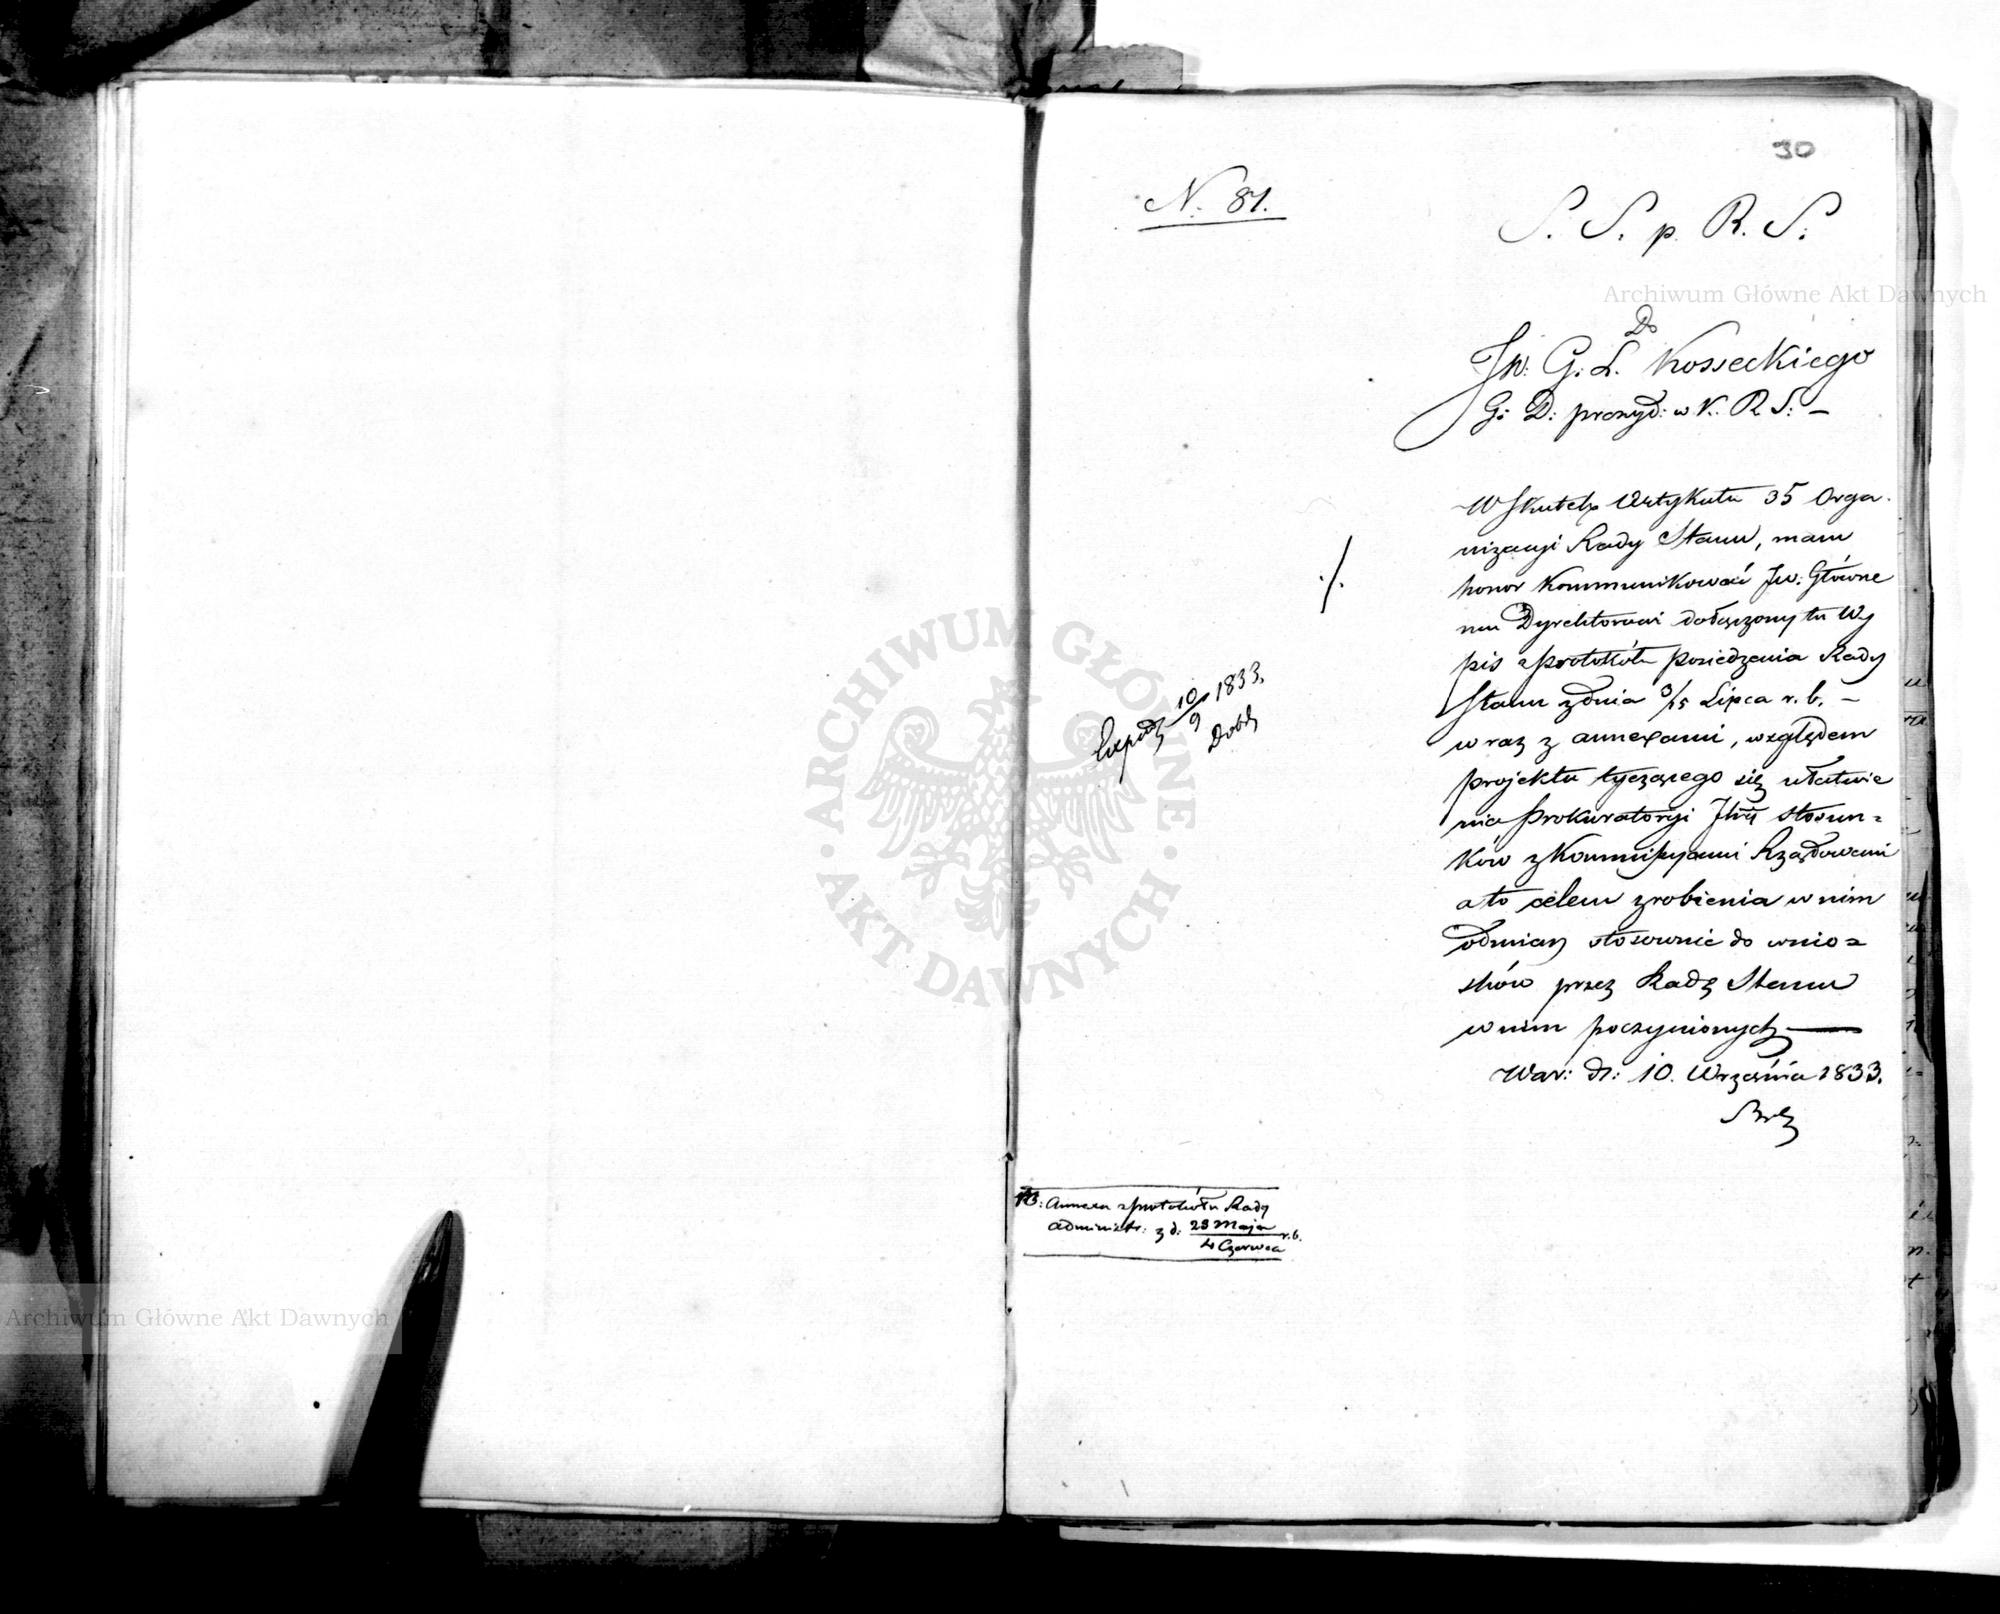 30
N. 81.
S. S. p. R. S.
Do
JW: G. L. Kosseckiego
G: D: prezyd: w K. R. S: –
W skutek Artykułu 35 Orga-
nizacyi Rady Stanu, mam
honor kommunikować JW: Główne
mu Dyrektorowi dołączony tu Wy
pis z protokółu posiedzenia Rady
Stanu z dnia 3/15 Lipca r. b. –
wraz z annexami, względem
projektu tyczącego się ułatwie
nia Prokuratoryi stosun=
ków z Kommissyami Rządowemi
a to celem zrobienia w nim
odmian stosownie do wnio=
sków przez Radę Stanu
w nim poczynionych —
War: d: 10. Września 1833.
./.
Exped 10/9 1833.
NB: Annexa z protokółu Rady
Administr: z d: 23 Maja
4 Czerwca r. b.
Archiwum Główne Akt Dawnych
Archiwum Główne Akt Dawnych
ARCHIWUM GŁÓWNE
AKT DAWNYCH